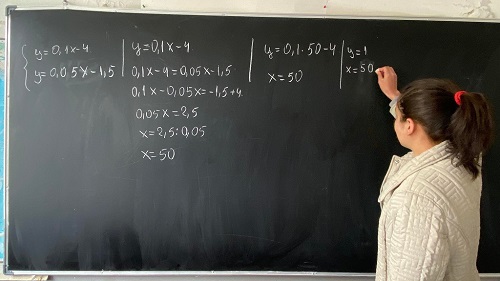 y=0,1x-4
y=0,05x-1,5
y=0,1x-4
0,1x-4=0,05x-1,5
0,1x-0,05x=-1,5+4
0,05x=2,5
x=2,5:0,05
x=50
y=0,1·50-4
x=50
y=1
x=50